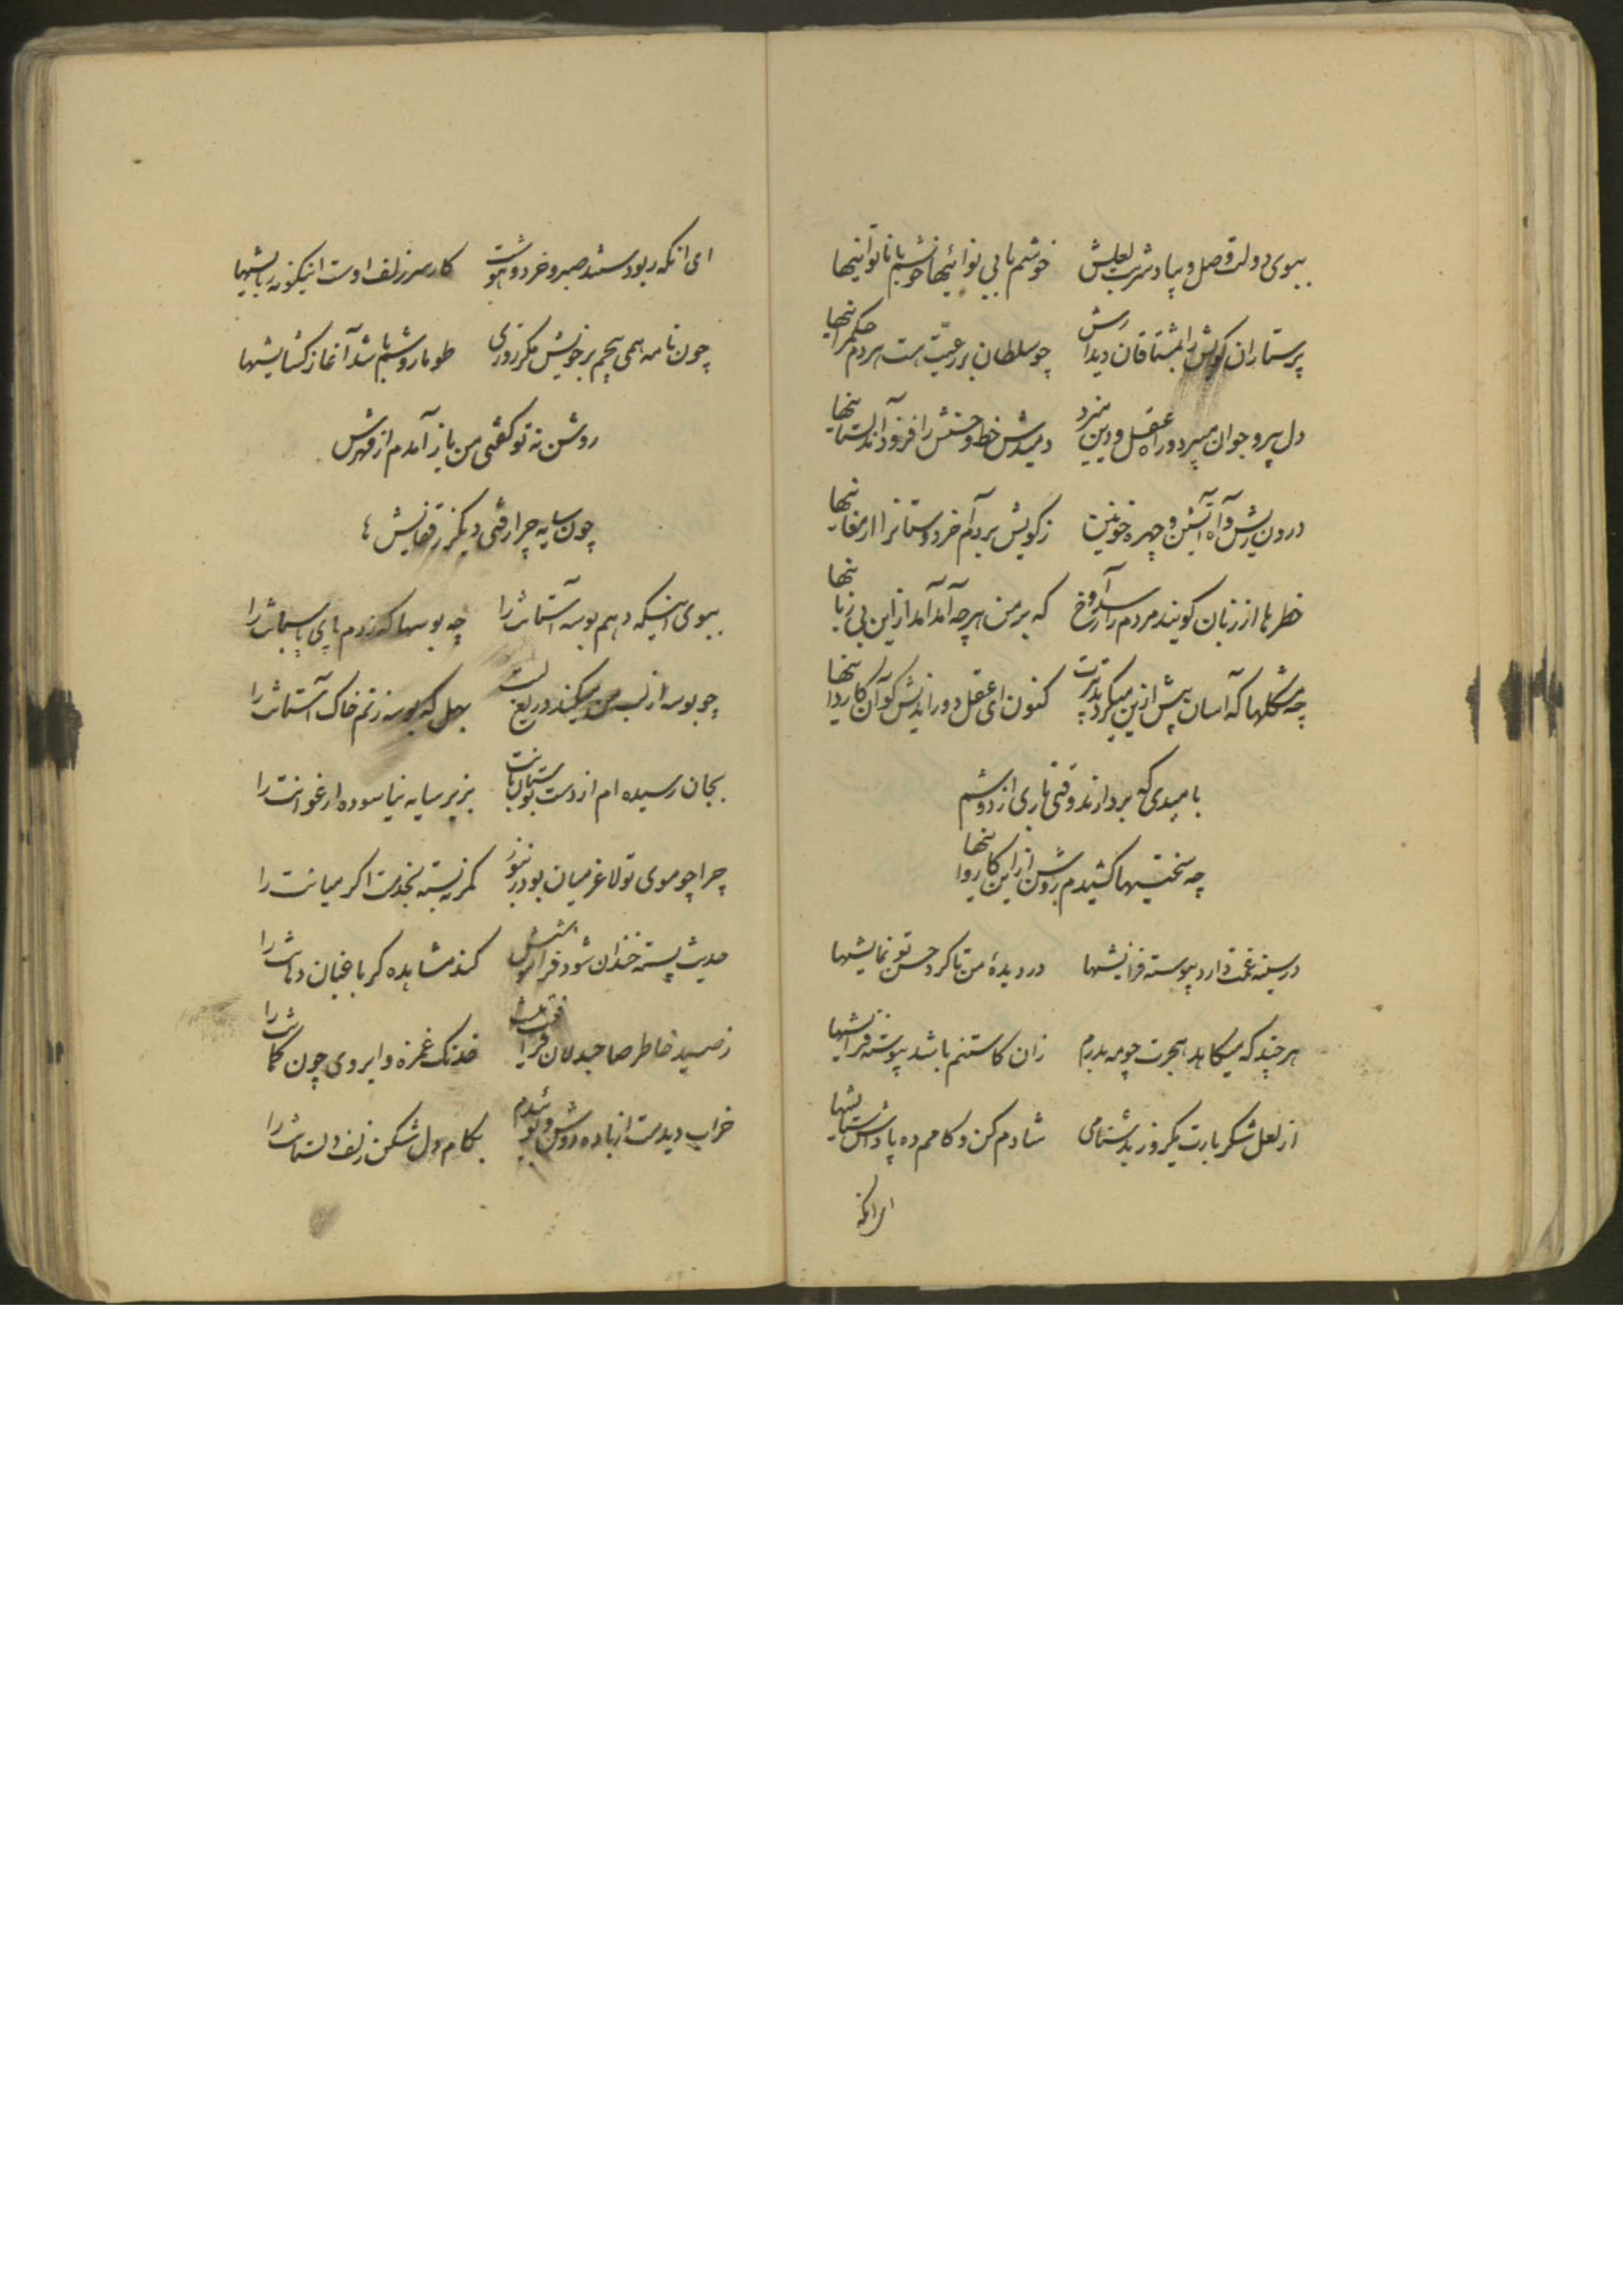 ببوی دولت وصل و بیاد شربت لعلش خوشم با بی نوائیها خوشم با ناتوانیها
پرستاران کویش را بمشتاقان دیدارش چو سلطان بر رعیت هست هر دم حکمرانیها
دل پیر و جوان میبرد و راه عقل و دین میزد دمیدش خط و حسنش را فزود آن دلستانیها
درون ریش و آه آتشین و چهره خونین ز کویش بردم آخر دوستانرا ارمغانیها
خطرها از زبان گویند مردم را رسد و آوخ که بر من هر چه آمد آمد از این بی زبانیها
چه مشکلها که آسان پیش ازین میکرد تدبیرت کنون ای عقل دوراندیش کو آن کاردانیها
بامیدی که بردارند وقتی باری از دوشم
چه سختیها کشیدم روشن از این کاروانیها
در سینه غمت دارد پیوسته فزایشها در دیدهٔ من تا کرد حسن تو نمایشها
هر چند که میکاهد هجرت چو مه بدرم زان کاستنم باشد پیوسته فزایشها
از لعل شکربارت یکروز بدشنامی شادم کن و کامم ده پاداش ستایشها
ای آنکه
ای آنکه ربودستند صبر و خرد و هوشت کار سر زلف اوست اینگونه ربایشها
چون نامه همی پیچم بر خویش مگر روزی طومار وشم باشد آغاز گشایشها
روشن نه تو گفتی من باز آمدم از مهرش
چون سایه چرا رفتی دیگر ز قفایش ها
ببوی اینکه دهم بوسه آستانش را چه بوسها که زدم پای پاسبانش را
چو بوسه از لب من میکند دریغ لبت بهل که بوسه زنم خاک آستانت را
بجان رسیده ام از دست بوستان بانت بزیر سایه نیاسوده ارغوانت را
چرا چو موی تو لاغر میان بود روشن کمر نبسته بخدمت اگر میانت را
حدیث پسته خندان شود فراموشش کند مشاهده گر باغبان دهانش را
ز صید خاطر صاحبدلان فراغت نیست خدنک غمزه و ابروی چون کمانش را
خراب دیدمت از باده دوش و بوئیدم بکام دل شکن زلف دلستانت را